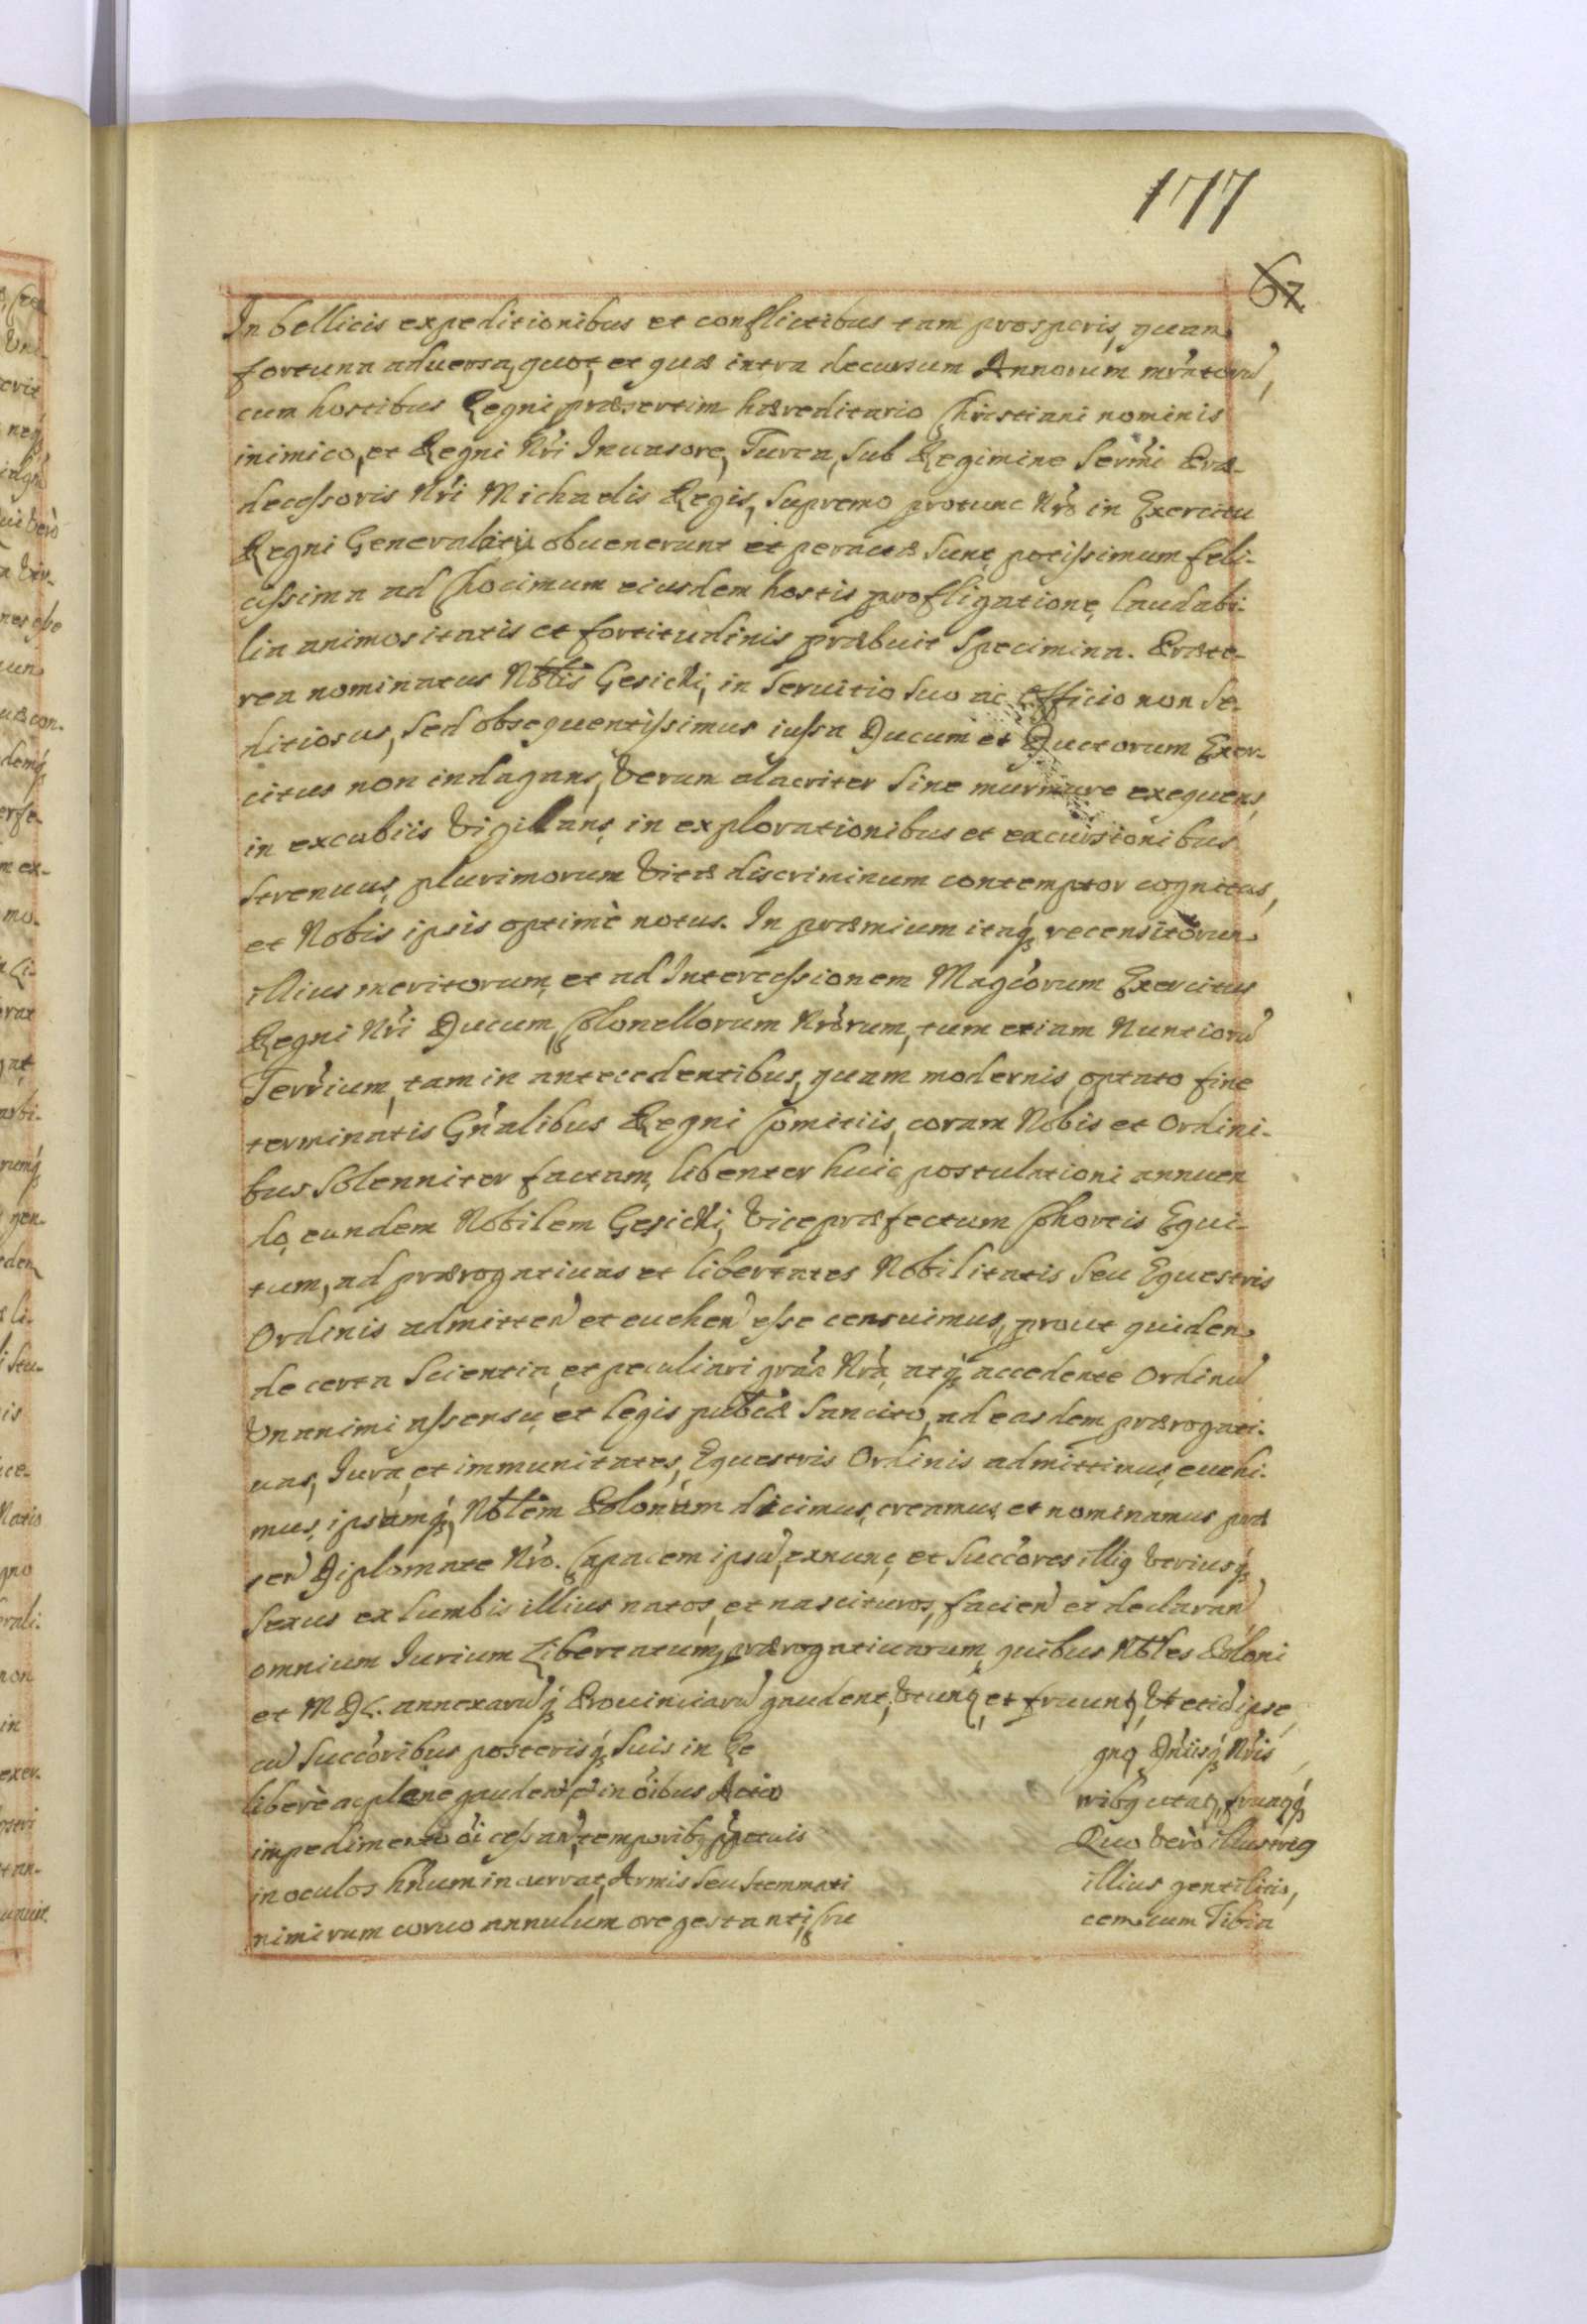 177
67
In bellicis expeditionibus et conflictibus tam prosperis, quam
fortuna aduersa, quot, et quæ intra decursum Annorum mr̃atorũ,
cum hostibus Regni præsertim hæreditario Christiani nominis
inimico, et Regni Nr̃i Inuasore, Turca, sub Regimine Serm̃i Præ-
decessoris Nr̃i Michaelis Regis, Supremo protunc Nr̃o in Exercitu
Regni Generalatu obuenerunt et peractæ sunt, potissimum feli-
cissima ad Chocimum eiusdem hostis profligatione, laudabi-
lia animositatis et fortitudinis præbuit Specimina. Præte-
rea nominatus Nob̃lis Gesicki, in Seruitio suo ac Officio non se-
ditiosus, sed obsequentissimus iussa Ducum et Ductorum Exer-
citus non indagans, verum alacriter sine murmure exequens,
in excubiis vigilans, in explorationibus et excursionibus
strenuus, plurimorum vitæ discriminum contemptor cognitus,
et Nobis ipsis optimè notus. In præmium itaq́ recensitorum
illius meritorum, et ad Intercessionem Mag̃corum Exercitus
Regni Nr̃i Ducum, Colonellorum Nr̃orum, tum etiam Nuntiorũ
Terr̃ium, tam in antecedentibus, quam modernis, optato fine
terminatis Gñalibus Regni Comitiis, coram Nobis et Ordini-
bus Solenniter factam, libenter huic postulationi annuen
do, eundem Nobilem Gesicki, vicepræfectum Cohortis Equi-
tum, ad prærogatiuas et libertates Nobilitatis seu Equestris
Ordinis admitteñ et eueheñ esse censuimus, prout quidem
de certa Scientia, et peculiari gr̃a Nr̃a, atq́ accedente Ordinũ
vnanimi assensu, et legis pub̃cæ Sancito, ad easdem prærogati-
uas, Iura, et immunitates, Equestris Ordinis admittimus, euehi-
mus, ipsumq́, Nob̃lem Polonum dicimus, creamus, et nominamus præ
señ Diplomate Nr̃o. Capacem ipsũ, exnunc, et Succ̃ores illiq vtriusq́
sexus ex lumbis illius natos, et nascituros, facieñ et declarañ
omnium Iurium Libertatum, prærogatiuarum, quibus Nob̃les Poloni
et M D L. annexarũq́ Prouinciarũ gaudent, vtunq, et fruunq, vt etiã ipse
cũ Succ̃oribus posterisq́ suis in Re gnq Dñiisq́ Nr̃is
liberè ac plane gaudent, et in õibus Actio nibq utaq, fruaqq́
impedimento õi cessante, temporibq ppetuis Quo verò illustriq
in oculos hñum incurrat, Armis seu Stemmati illius gentilitio,
nimirum coruo annulum ore gestanti, Cru cem cum Tibia